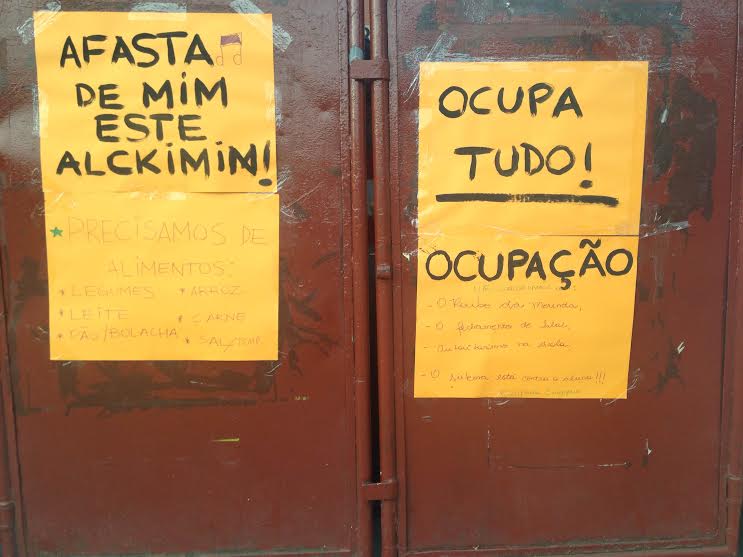 AFASTA
DE MIM
ESTE
ALCKIMIN!
PRECISAMOS DE
ALIMENTOS:
* LEGUMES * ARROZ
* LEITE * CARNE
* PÃO/BOLACHA * SAL/TEMP.
OCUPA
TUDO!
OCUPAÇÃO
- O Roubo da Merenda,
- O fechamento de Salas,
- Autoritarismo na escola
- O sistema está contra o aluno!!!